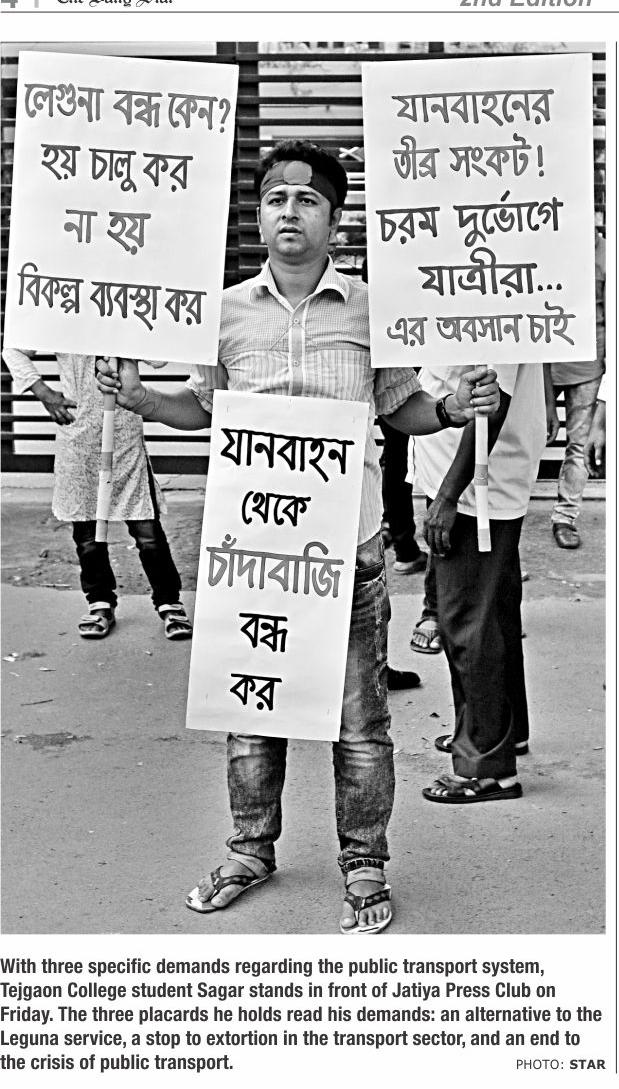 The Daily Star
2nd Edition
লেগুনা বন্ধ কেন?
হয় চালু কর
না হয়
বিকল্প ব্যবস্থা কর
যানবাহনের
তীব্র সংকট!
চরম দুর্ভোগে
যাত্রীরা...
এর অবসান চাই
যানবাহন
থেকে
চাঁদাবাজি
বন্ধ
কর
With three specific demands regarding the public transport system,
Tejgaon College student Sagar stands in front of Jatiya Press Club on
Friday. The three placards he holds read his demands: an alternative to the
Leguna service, a stop to extortion in the transport sector, and an end to
the crisis of public transport.
PHOTO: STAR